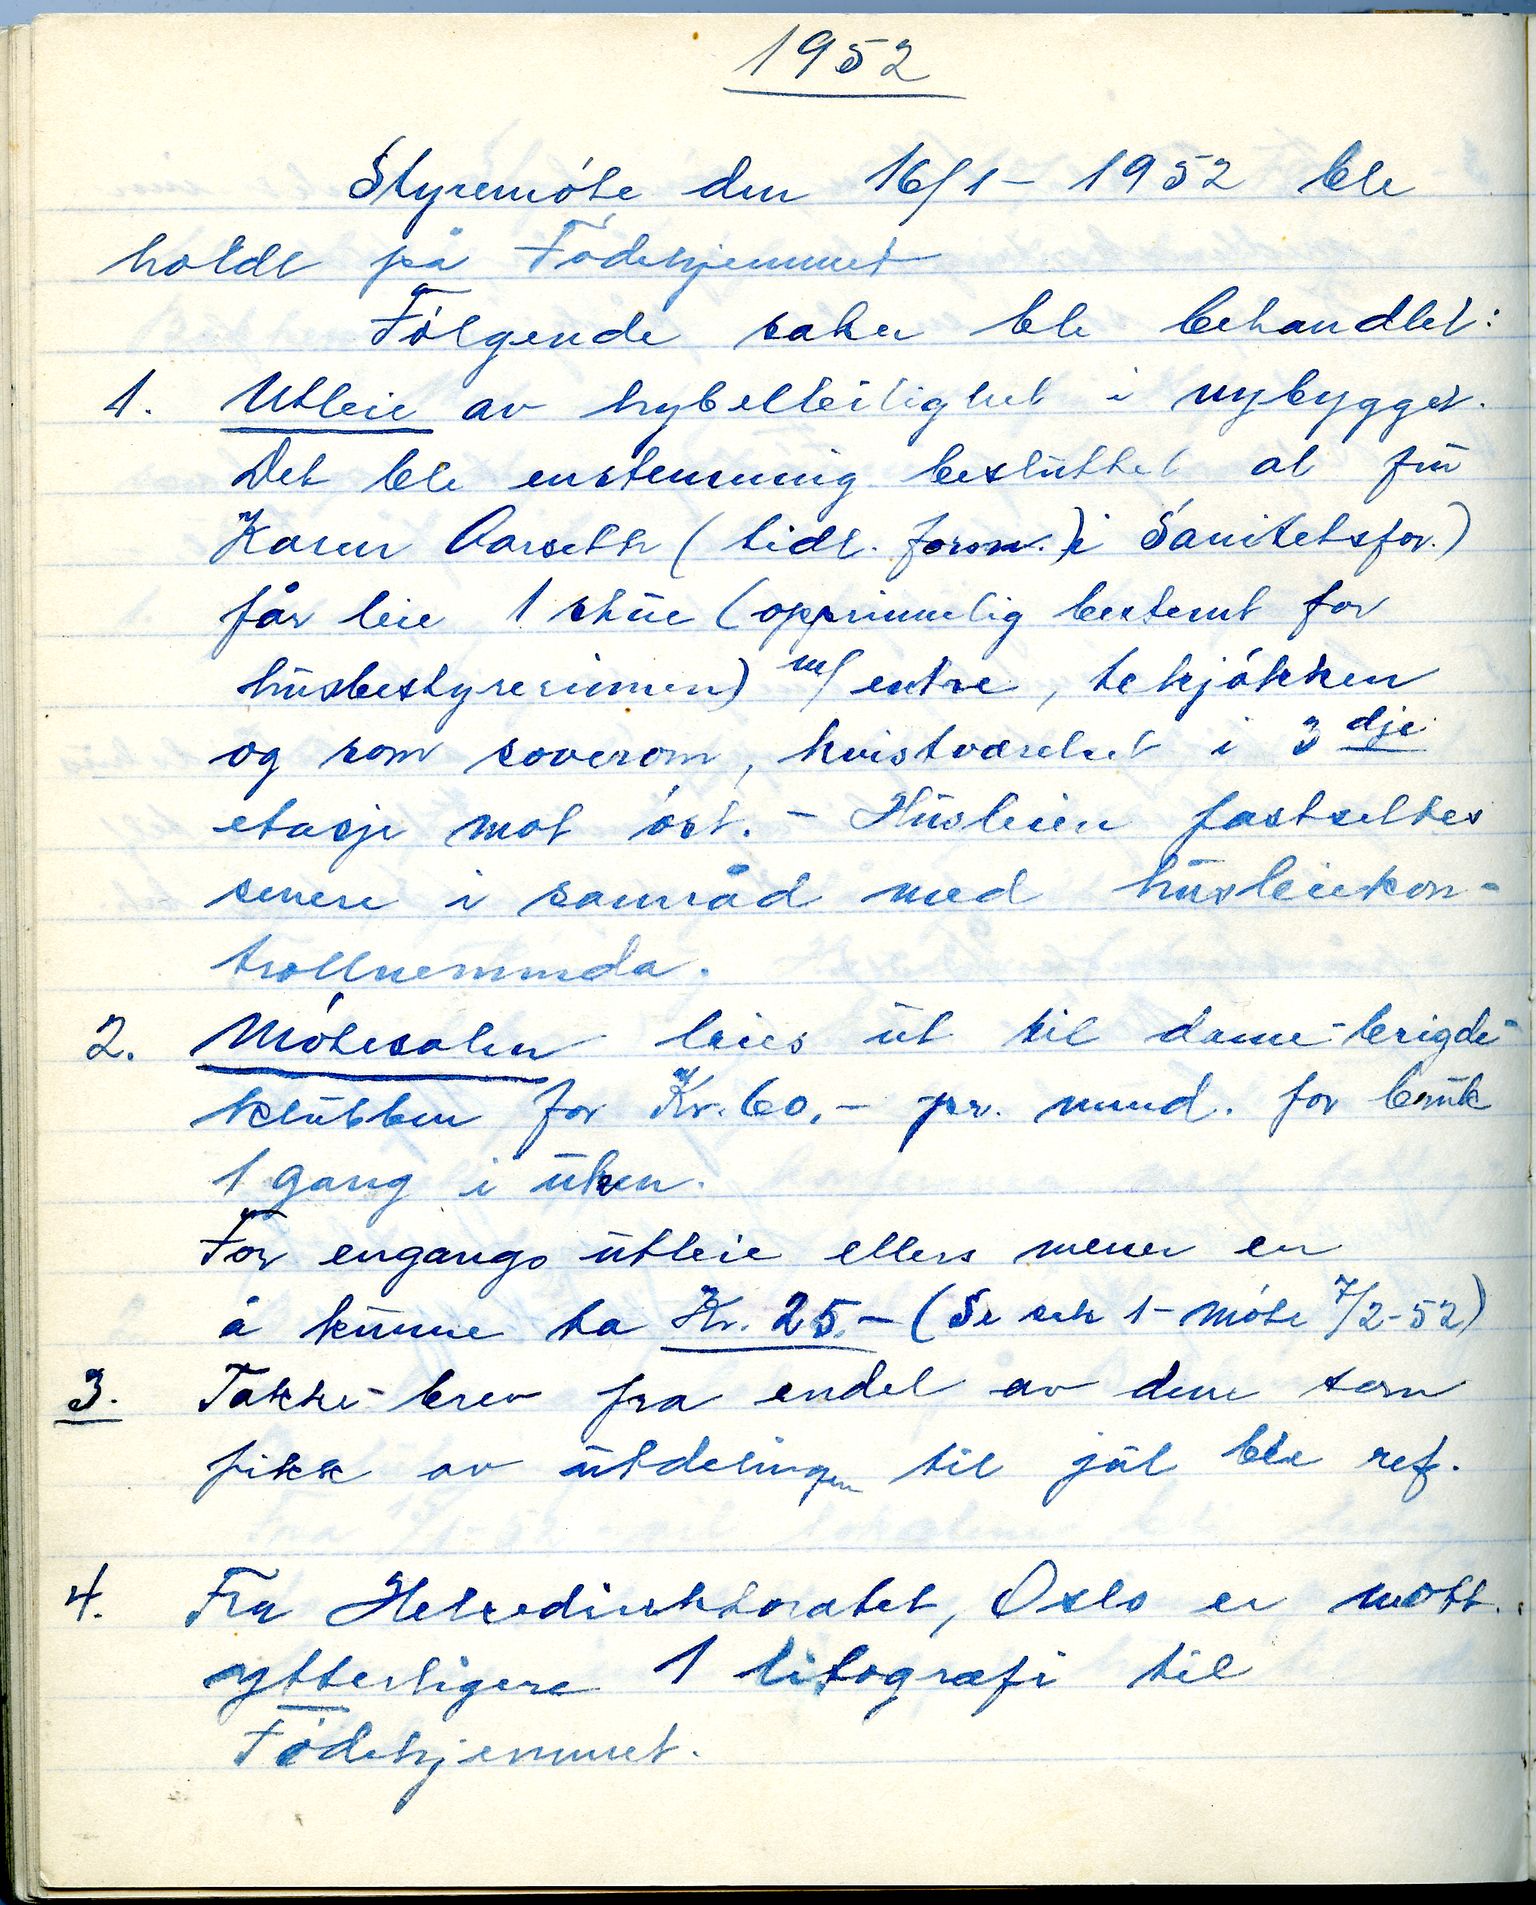 1952
Styremöte den 16/1 - 1952 ble
holdt på Födehjemmet
Fölgende saker ble behandlet:
1. Utleie av hybelleilighet i nybygget.
Det ble enstemmig besluttet at frü
Karen Aarseth (tidl. form.) i Sanitetsfor.)
får leie 1 stüe (opprinnelig bestemt for
hüsbestyrerinnen) m/ entre, tekjökken
og som soverom, kvistværelset i 3 dje
etasje mot öst. - Hüsleien fastsettes
senere i samråd med hüsleiekon-
trollnemnda.
2. Mötesalen leies üt til dame-brigde-
klübben for Kr. 60,- pr. mnd. for brük
1 gang i üken.
For engangs ütleie ellers mener en
å künne ta Kr. 25.- (Se sak 1 - möte 7/2-52)
3. Takke-brev fra endel av dem som
fikk av ütdelingen til jül ble ref.
4. Fra Helsedirektoratet, Oslo er mott.
ytterligere 1 litografi til
Födehjemmet.